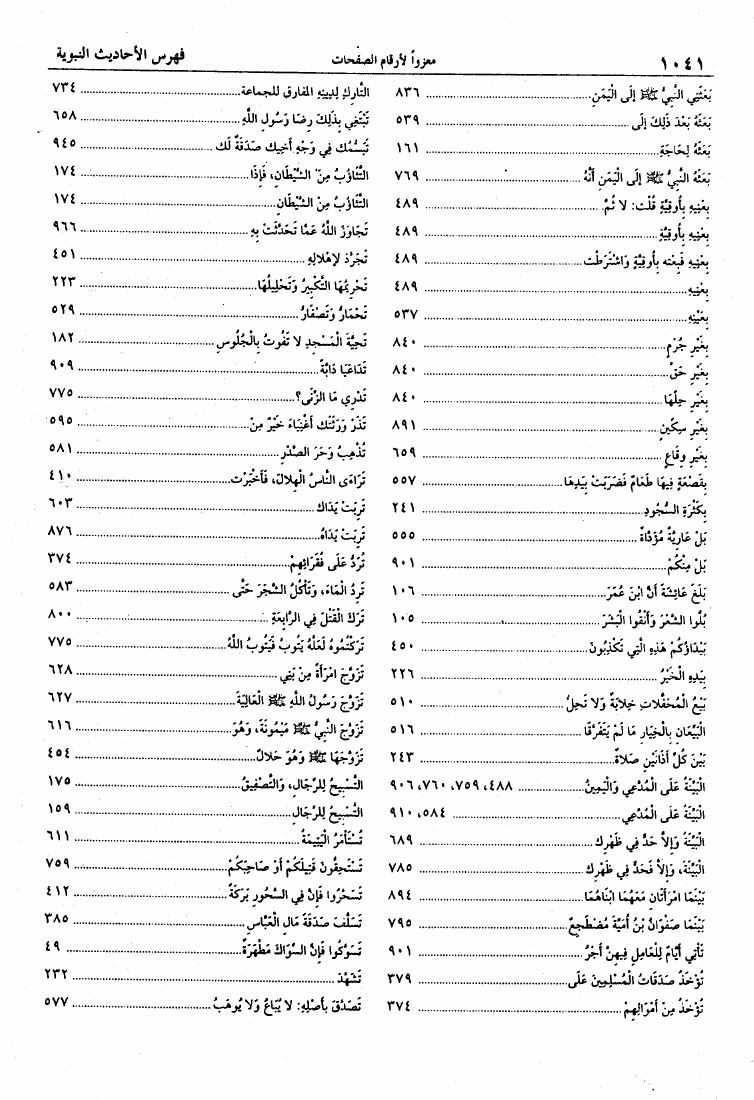 ١٠٤١ معزواً لأرقام الصفحات فهرس الأحاديث النبوية
بَعَثَنِي النَّبِيُّ ﷺ إِلَى الْيَمَنِ ٨٣٦
بَعَثَهُ بَعْدَ ذَلِكَ إِلَى ٥٣٩
بَعَثَهُ لِحَاجَةٍ ١٦١
بَعَثَهُ النَّبِيُّ ﷺ إِلَى الْيَمَنِ أَنَّهُ ٧٦٩
بِعْنِيهِ بِأُوقِيَّةٍ قُلْتُ: لَا ثُمَّ ٤٨٩
بِعْنِيهِ بِأُوقِيَّةٍ ٤٨٩
بِعْنِيهِ فَبِعْتُه بِأُوقِيَّةٍ وَاشْتَرَطْتُ ٤٨٩
بِعْنِيهِ ٤٨٩
بِعَيْنِهِ ٥٣٧
بِغَيْرِ جُرْمٍ ٨٤٠
بِغَيْرِ حَقٍّ ٨٤٠
بِغَيْرِ حِلِّهَا ٨٤٠
بِغَيْرِ سِكِّينٍ ٨٩١
بِغَيْرِ وِقَاعٍ ٦٥٩
بِقَصْعَةٍ فِيهَا طَعَامٌ فَضَرَبَتْ بِيَدِهَا ٥٥٧
بِكَثْرَةِ السُّجُودِ ٢٤١
بَلْ عَارِيَةٌ مُؤَدَّاةٌ ٥٥٥
بَلْ مِنْكُمْ ٩٠١
بَلَغَ عَائِشَةَ أَنَّ ابْنَ عُمَرَ ١٠٦
بُلُّوا الشَّعْرَ وَأَنْقُوا الْبَشَرَ ١٠٥
بَيْدَاؤُكُمْ هَذِهِ الَّتِي تَكْذِبُونَ ٤٥٠
بِيَدِهِ الْخَيْرُ ٢٢٦
بَيْعُ الْمُحَفَّلَاتِ خِلَابَةٌ وَلَا تَحِلُّ ٥١٠
الْبَيِّعَانِ بِالْخِيَارِ مَا لَمْ يَتَفَرَّقَا ٥١٦
بَيْنَ كُلِّ أَذَانَيْنِ صَلَاةٌ ٢٤٣
الْبَيِّنَةُ عَلَى الْمُدَّعِي وَالْيَمِينُ ٤٨٨، ٧٥٩، ٧٦٠، ٩٠٦
الْبَيِّنَةُ عَلَى الْمُدَّعِي ٥٨٤، ٩١٠
الْبَيِّنَةُ وَإِلَّا حَدٌّ فِي ظَهْرِكَ ٦٨٩
الْبَيِّنَةُ، وَإِلَّا فَحَدٌّ فِي ظَهْرِكَ ٧٨٥
بَيْنَمَا امْرَأَتَانِ مَعَهُمَا ابْنَاهُمَا ٨٩٤
بَيْنَمَا صَفْوَانُ بْنُ أُمَيَّةَ مُضْطَجِعٌ ٧٩٥
تَأْتِي أَيَّامٌ لِلْعَامِلِ فِيهِنَّ أَجْرُ ٩٠١
تُؤْخَذُ صَدَقَاتُ الْمُسْلِمِينَ عَلَى ٣٧٩
تُؤْخَذُ مِنْ أَمْوَالِهِمْ ٣٧٤
التَّارِكُ لِدِينِهِ المفَارِق لِلجماعة ٧٣٤
تَبْتَغِي بِذَلِكَ رِضَا رَسُولِ اللَّهِ ٦٥٨
تَبَسُّمُكَ فِي وَجْهِ أَخِيكَ صَدَقَةٌ لَك ٩٤٥
التَّثَاؤُبُ مِنَ الشَّيْطَانِ، فَإِذَا ١٧٤
التَّثَاؤُبُ مِنَ الشَّيْطَانِ ١٧٤
تَجَاوَزَ اللَّهُ عَمَّا تَحَدَّثَتْ بِهِ ٩٦٦
تَجَرَّدَ لِإِهْلَالِهِ ٤٥١
تَحْرِيمُهَا التَّكْبِيرُ وَتَحْلِيلُهَا ٢٢٣
تَحْمَارُّ وَتَصْفَارُّ ٥٢٩
تَحِيَّةُ الْمَسْجِدِ لَا تَفُوتُ بِالْجُلُوسِ ١٨٢
تَدَاعَيَا دَابَّةً ٩٠٩
تَدْرِي مَا الزِّنَى؟ ٧٧٥
تَذَرَ وَرَثَتَكَ أَغْنِيَاءَ خَيْرٌ مِنْ ٥٩٥
تُذْهِبُ وَحَرَ الصَّدْرِ ٥٨١
تَرَاءَى النَّاسُ الْهِلَالَ، فَأَخْبَرْتُ ٤١٠
تَرِبَتْ يَدَاكَ ٦٠٣
تَرِبَتْ يَدَاهُ ٨٧٦
تُرَدُّ عَلَى فُقَرَائِهِمْ ٣٧٤
تَرِدُ الْمَاءَ، وَتَأْكُلُ الشَّجَرَ حَتَّى ٥٨٣
تَرَكَ الْقَتْلَ فِي الرَّابِعَةِ ٨٠٠
تَرَكْتُمُوهُ لَعَلَّهُ يَتُوبُ فَيَتُوبُ اللَّهُ ٧٧٥
تَزَوَّجَ امْرَأَةً مِنْ بَنِي ٦٢٨
تَزَوَّجَ رَسُولُ اللَّهِ ﷺ الْعَالِيَةَ ٦٢٧
تَزَوَّجَ النَّبِيُّ ﷺ مَيْمُونَةَ، وَهُوَ ٦١٦
تَزَوَّجَهَا ﷺ وَهُوَ حَلَالٌ ٤٥٤
التَّسْبِيحُ لِلرِّجَالِ، وَالتَّصْفِيقُ ١٧٥
التَّسْبِيحُ لِلرِّجَالِ ١٥٩
تُسْتَأْمَرُ الْيَتِيمَةُ ٦١١
تَسْتَحِقُّونَ قَتِيلَكُمْ أَوْ صَاحِبَكُمْ ٧٥٩
تَسَحَّرُوا فَإِنَّ فِي السَّحُورِ بَرَكَةً ٤١٢
تَسَلَّفَ صَدَقَةَ مَالِ الْعَبَّاسِ ٣٨٥
تَسَوَّكُوا فَإِنَّ السِّوَاكَ مَطْهَرَةٌ ٤٩
تَشَهَّدَ ٢٣٢
تَصَدَّقْ بِأَصْلِهِ: لَا يُبَاعُ وَلَا يُوهَبُ ٥٧٧